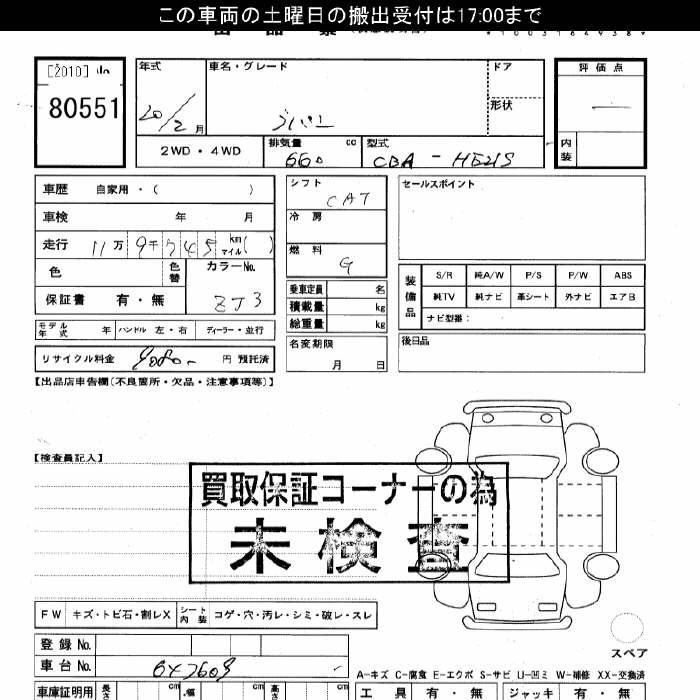 この車両の土曜日の搬出受付は17:00まで
[2010]
80551
年式
20/2月
車名・グレード
ラパン
ドア
形状
評価点
内装
2WD・4WD
排気量 660 cc
型式 CBA-HE21S
車歴 自家用・( )
車検 年 月
走行 11万9千745km マイル( )
色
色替
カラーNo. ZJ3
保証書 有・無
シフト CAT
冷房
燃料 G
乗車定員 名
積載量 kg
総重量 kg
名変期限
月 日
セールスポイント
装備品
S/R 純A/W P/S P/W ABS
純TV 純ナビ 革シート 外ナビ エアB
ナビ型番:
後日品
モデル年式 年
ハンドル 左・右
ディーラー・並行
リサイクル料金 円 預託済
【出品店申告欄(不良箇所・欠品・注意事項等)】
【検査員記入】
買取保証コーナーの為
未検査
FW キズ・トビ石・割レX
シート内装 コゲ・穴・汚レ・シミ・破レ・スレ
スペア
登録No.
車台No.
A-キズ C-腐食 E-エクボ S-サビ U-凹ミ W-補修 XX-交換済
車庫証明用 長さ cm 幅 cm 高さ cm
工具 有・無 ジャッキ 有・無